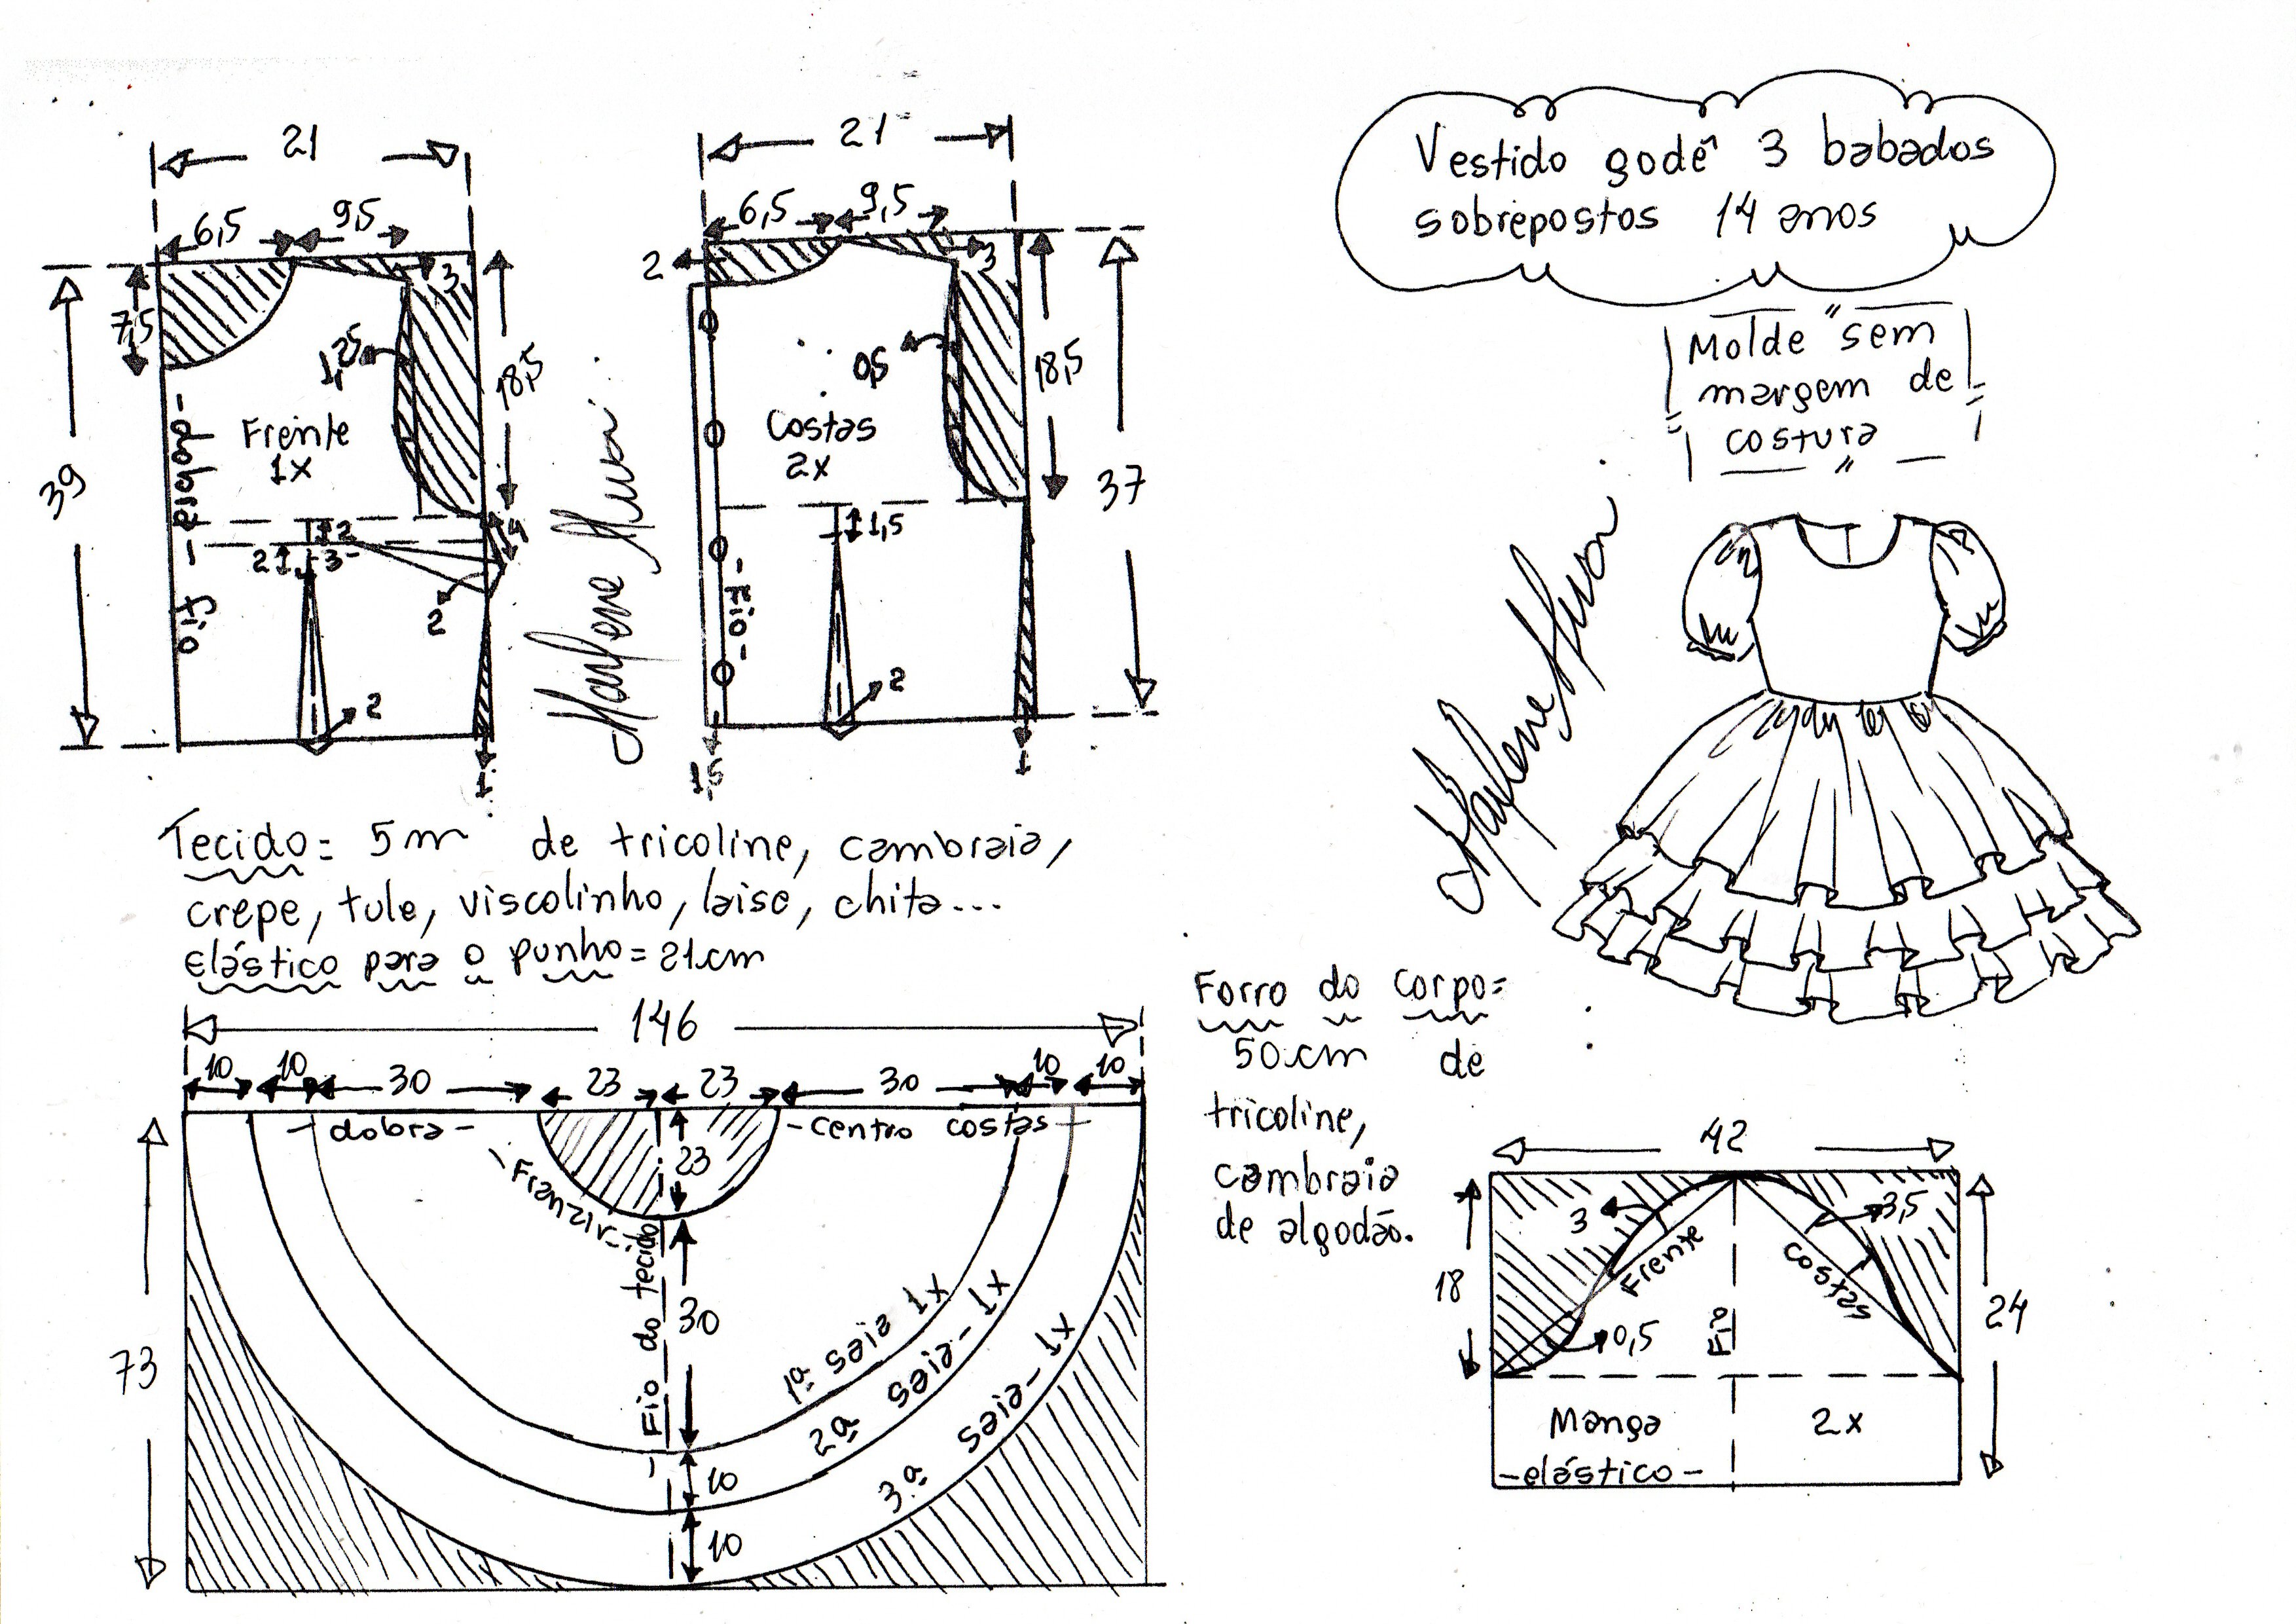 Vestido godê 3 babados
sobrepostos 14 anos
Molde "sem
margem de
costura"
21
6,5
9,5
3
7,5
39
1,25
18,5
Frente
1x
-fio - dobra-
2
2
3
4
2
2
1
Marlene Mukai
21
6,5
9,5
2
3
0,5
18,5
37
Costas
2x
1,5
-Fio-
2
1,5
1
Marlene Mukai
Tecido= 5m de tricoline, cambraia,
crepe, tule, viscolinho, laise, chita...
elástico para o punho=21cm
146
10 10 30 23 23 30 10 10
-dobra-
-centro costas-
23
-Franzir-
- Fio do tecido
30
73
1ª saia 1x
2ª saia-1x
3ª saia-1x
10
10
Forro do corpo=
50cm de
tricoline,
cambraia
de algodão.
42
3
3,5
Frente
Costas
18
24
0,5
Fio
Manga 2x
-elástico-